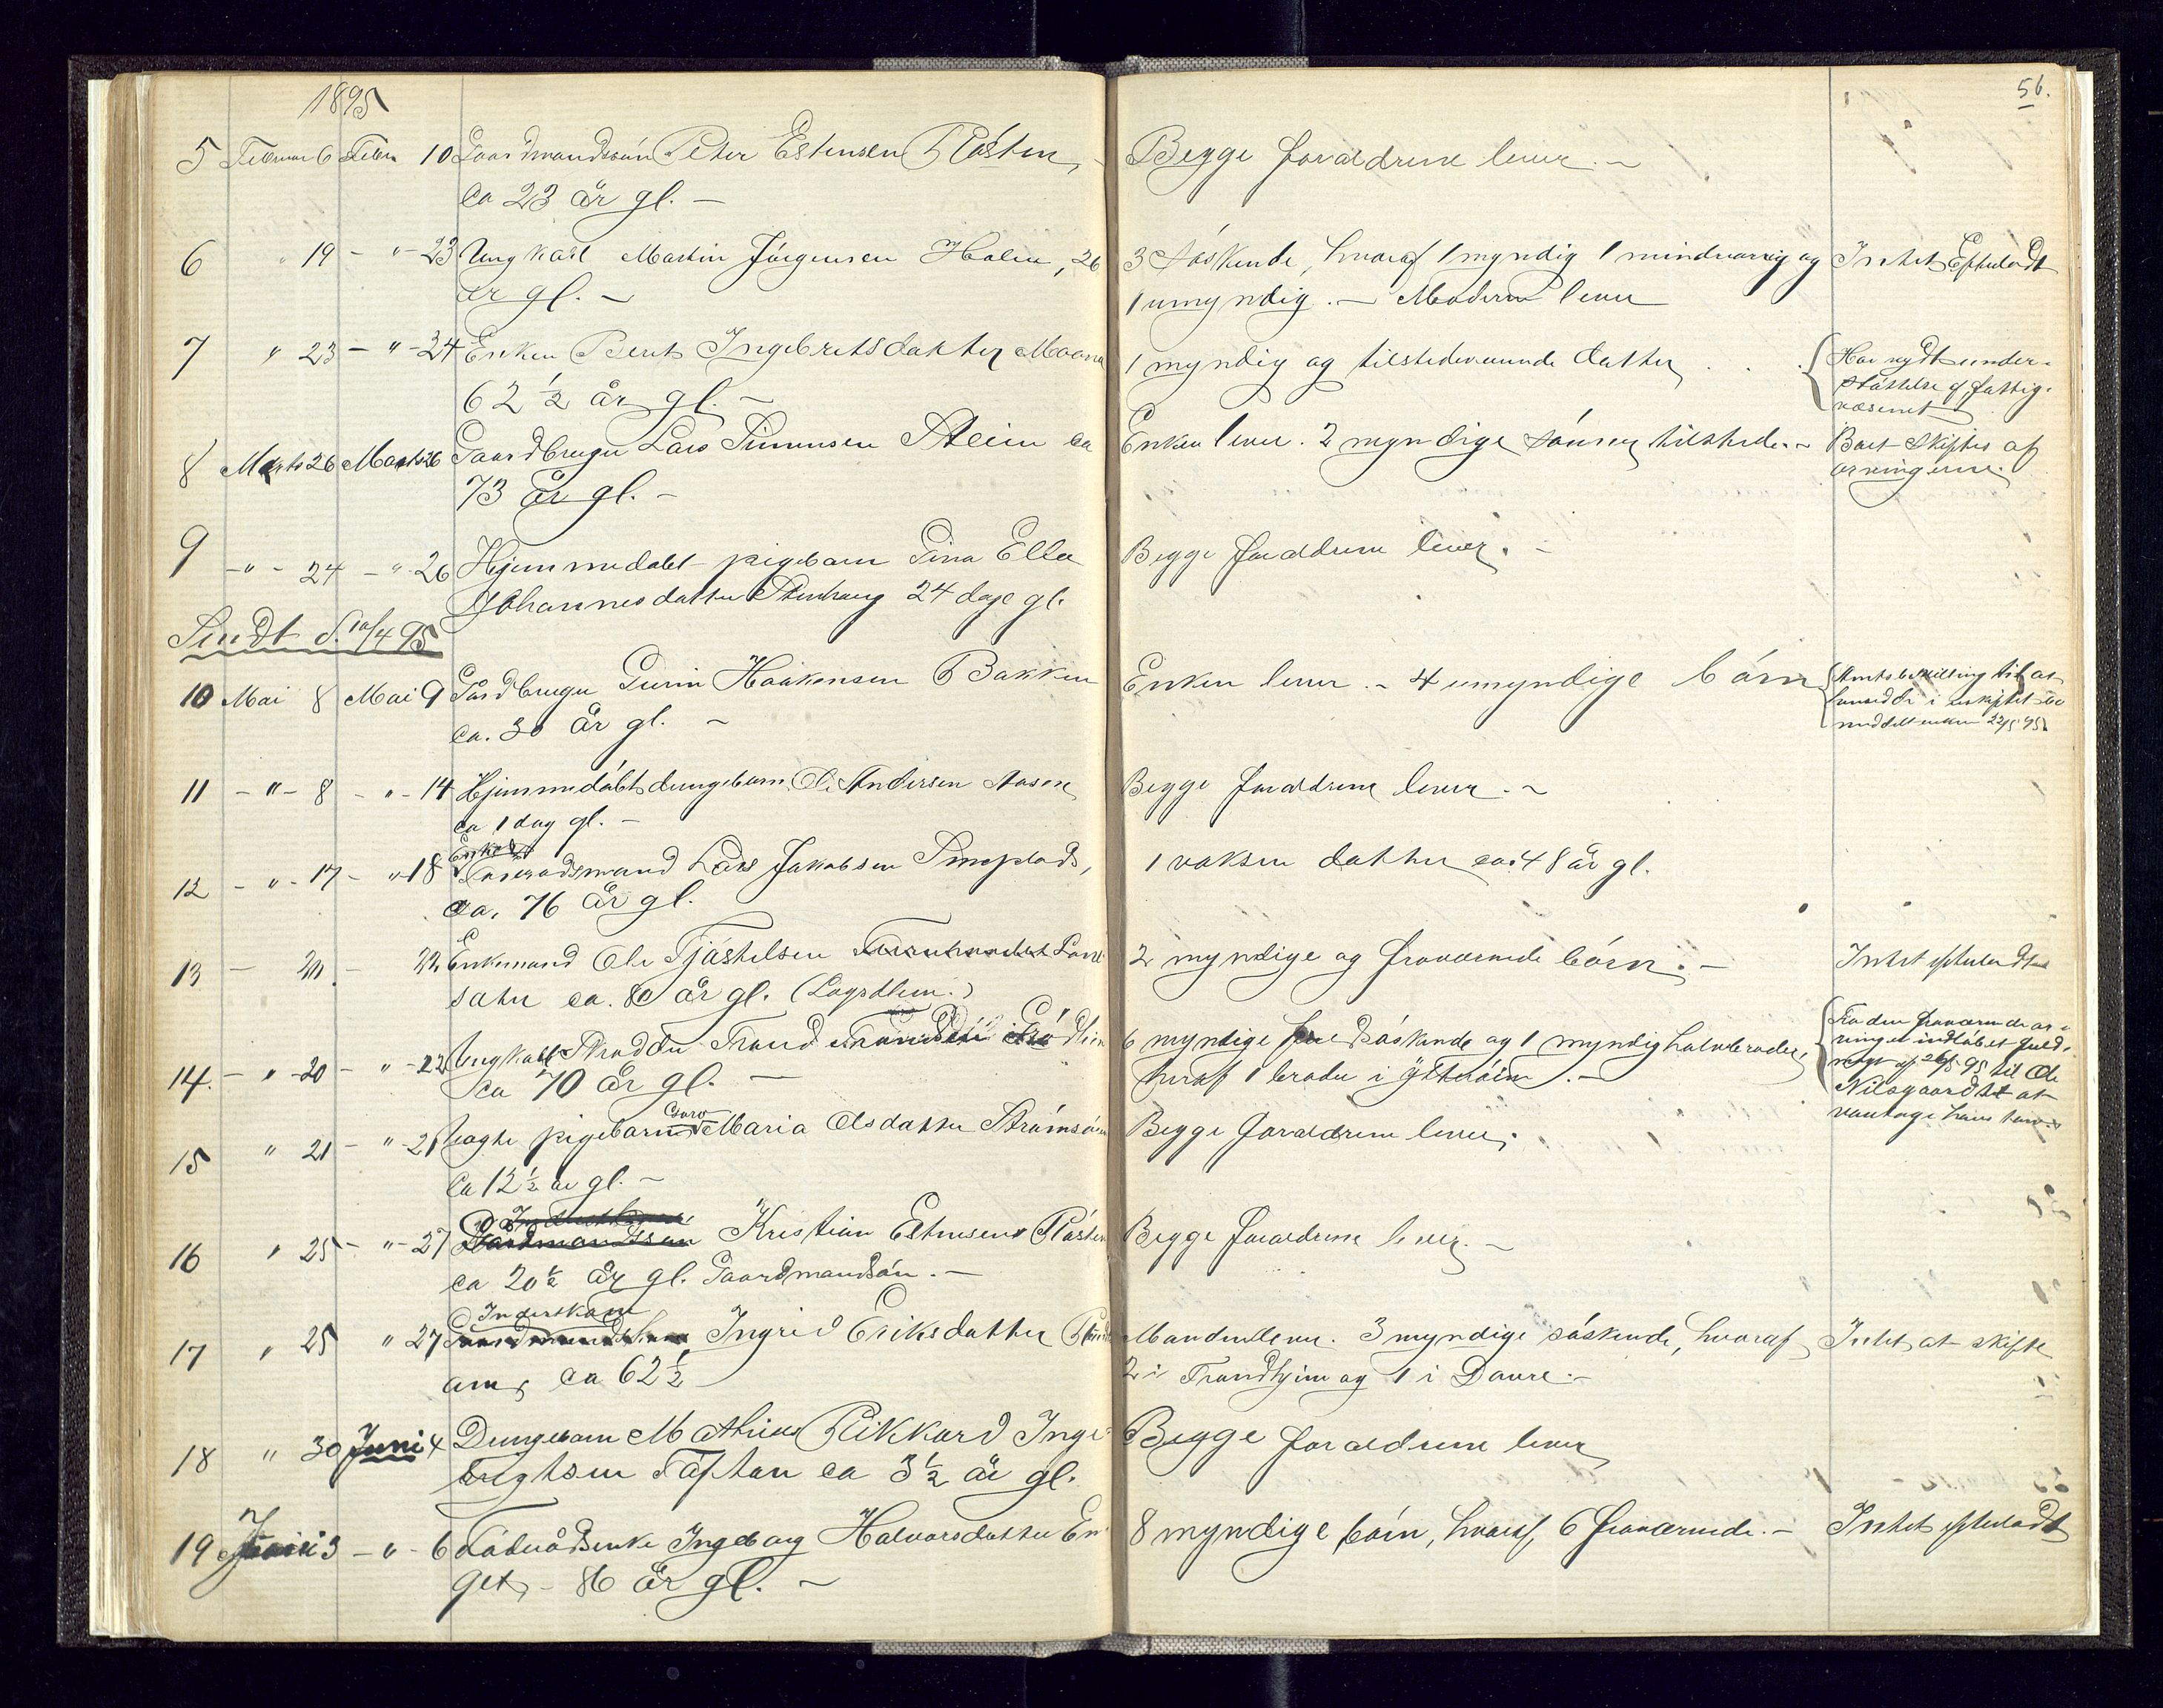 1895
56.
5 Februar 6 Febr 10 Gaardmandssøn Peter Estensen Røsten, Begge forældrene lever. –
ca 23 år gl. –
6 " 19 – " – 23 Ungkarl Martin Jørgensen Holm, 26 3 søskende, hvoraf 1 myndig 1 mindreårig og Intet Efterladt
år gl. – 1 umyndig. – Moderen lever
7 " 23 – " – 24 Enken Berit Ingebrigtsdatter Moan 1 myndig og tilstedeværende datter . . . Har nydt under-
62 ½ år gl. – støttelse af fattig-
væsenet
8 Marts 26 Marts 26 Gaardbruger Lars Simensen Steien ca Enken lever. 2 myndige sønner tilstede. – Boet skiftes af
73 år gl. – arvingerne.
9 – " – 24 – " – 26 Hjemmedøbt pigebarn Gina Ella Begge forældrene lever. –
Johannesdatter Stenhaug 24 dage gl.
Sendt d. 10/4 95
10 Mai 8 Mai 9 Gårdbruger Haakensen Bakken Enken lever. – 4 umyndige børn
ca. 30 år gl. – i uskiftet bo
meddelt enken 22/5 95
11 – " – 8 – " – 14 Hjemmedøbt drengebarn Ole Andersen Aasen Begge forældrene lever. –
ca 1 dag gl. –
12 – " – 17 – " – 18 Lars Jakobsen 1 voksen datter ca. 48 år gl.
ca. 76 år gl.
13 – 20 – 22 Enkemand Ole Tjøstelsen 2 myndige og fraværende børn. – Intet efterladt
ca. 80 år gl.
14. – " – 20 – " – 22 Ungkarl Skrædder Trond 6 myndige søskende og 1 myndig halvbroder, Fra den fraværende ar-
ca 70 år gl. – heraf 1 broder i . – vinger indløbet fuld-
magt af 26/5 95 til Ole
Nilsgaardst at
varetage hans tarv.
15 " 21 – " – 21 pigebarn Guro Maria Olsdatter Strømsøien Begge forældrene lever.
ca 12 ½ år gl. –
16 " 25 – " – 27 Kristian Estensen Røsten Begge forældrene lever. –
ca 20 ½ år gl. Gaardmandssøn. –
Inderstkone
17 " 25 " 27 Ingrid Eriksdatter Manden lever. 3 myndige søskende, hvoraf Intet at skifte
ca 62 ½ 2 i Trondhjem og 1 i . –
18 " 30 Juni 4 Drengebarn Mathias Rikkard Inge- Begge forældrene lever
brigtsen Tøftan ca 3 ½ år gl.
19 Juni 3 – " – 6 Føderådsenke Ingeborg Halvorsdatter En- 8 myndige børn, hvoraf 6 fraværende. – Intet efterladt
get, – 86 år gl. –